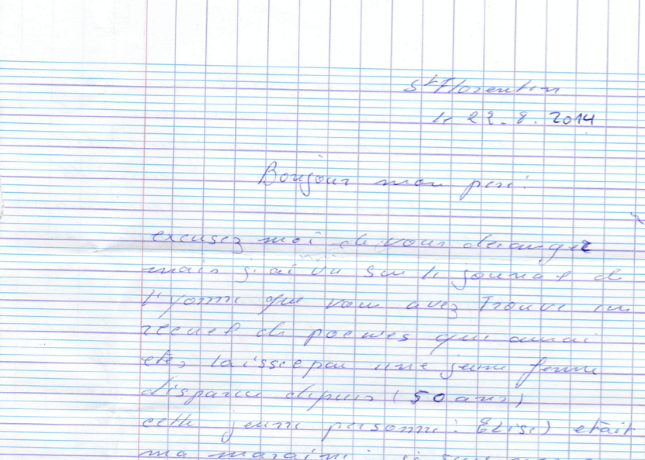 St Florentin
le 22-8-2014
Bonjour mon pere!
excusez moi de vous deranger
mais j'ai vu sur le journal de
l'yonne que vous avez trouve un
recueil de poemes qui aurai
etez laissé par une jeune femme
disparue depuis (50 ans)
cette jeune personne: Elise) etait
ma